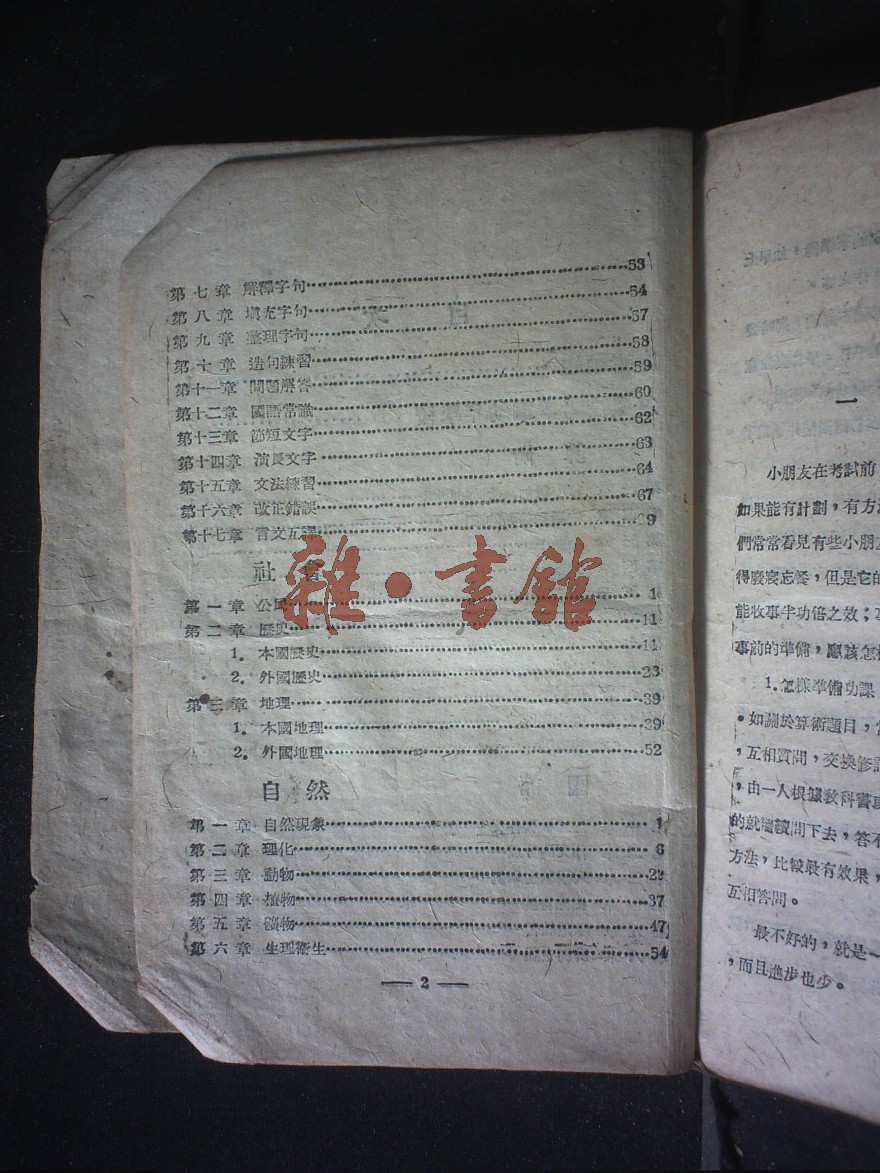 第七章 解釋字句 53
第八章 填充字句 54
第九章 整理字句 57
第十章 造句練習 58
第十一章 問題解答 59
第十二章 國語常識 60
第十三章 節短文字 62
第十四章 演長文字 63
第十五章 文法練習 64
第十六章 改正錯誤 67
第十七章 言文互譯 69
社會
第一章 公民 1
第二章 歷史 11
1. 本國歷史 11
2. 外國歷史 23
第三章 地理 39
1. 本國地理 39
2. 外國地理 52
自然
第一章 自然現象 1
第二章 理化 6
第三章 動物 22
第四章 植物 37
第五章 礦物 47
第六章 生理衛生 54
— 2 —
雜·書館
一
小朋友在考試前
如果能有計劃,有方法
們常常看見有些小朋友
得廢寢忘餐,但是它的
能收事半功倍之效;
事前的準備,應該怎
1.怎樣準備功課
。如關於算術題目,
,互相質問,交換修
,由一人根據教科書
的就繼續問下去,答不
方法,比較最有效果,
互相答問。
最不好的,就是一
,而且進步也少。